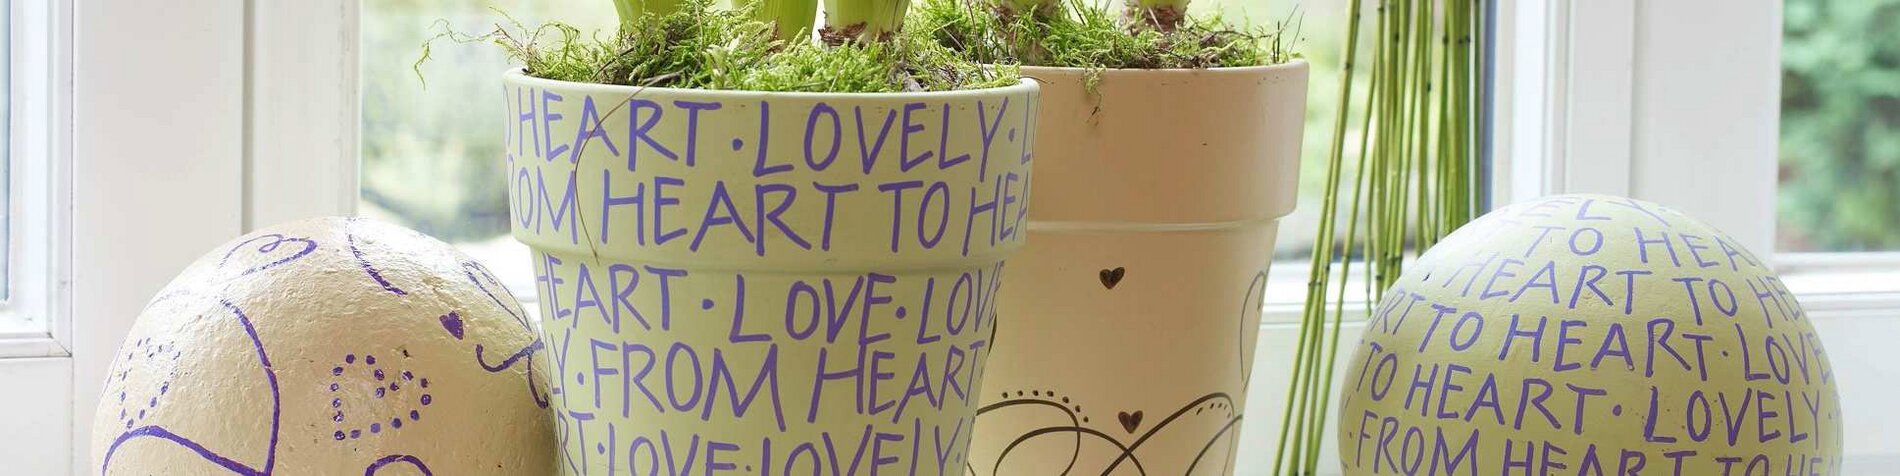 HEART · LOVELY ·
OM HEART TO HEA
HEART · LOVE · LOV
Y · FROM HEART
RT · LOVE · LOVELY ·
ELY
TO HEA
HEART TO HE
RT TO HEART · LOVE
TO HEART · LOVELY
FROM HEART TO HE